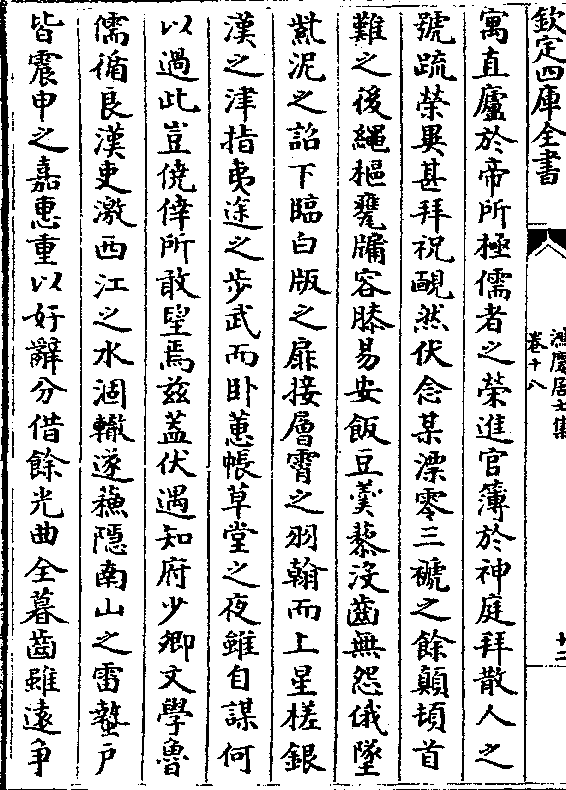 欽定四庫全書
鴻慶居士集
卷十八
十二
寓直廬於帝所極儒者之榮進官簿於神庭拜散人之
號疏榮異甚拜祝靦然伏念某漂零三禠之餘顛頓首
難之後繩樞甕牖容膝易安飯豆羮藜沒齒無怨俄墜
紫泥之詔下臨白版之扉接層霄之羽翰而上星槎銀
漢之津指夷途之步武而卧蕙帳草堂之夜雖自謀何
以過此豈僥倖所敢望焉兹蓋伏遇知府少卿文學魯
儒循良漢吏激西江之水涸轍遂蘇隠南山之雷蟄户
皆震申之嘉惠重以好辭分借餘光曲全暮齒雖遠爭